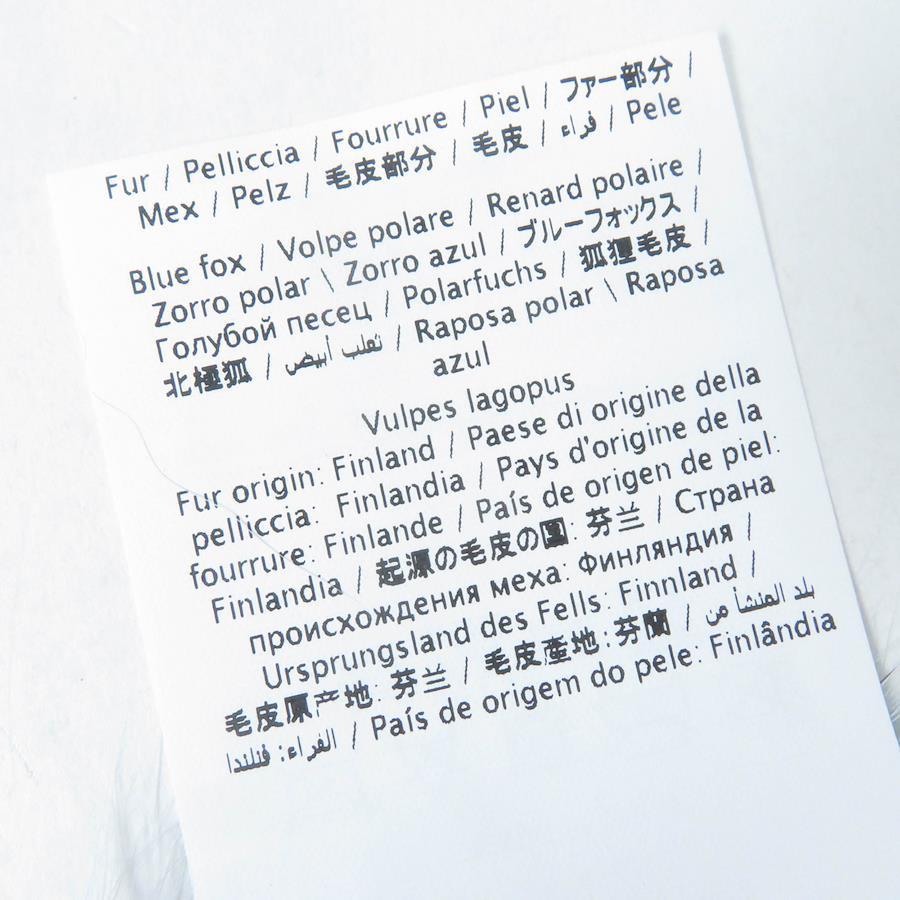 Fur / Pelliccia / Fourrure / Piel / ファー部分 /
Mex / Pelz / 毛皮部分 / 毛皮 / فراء / Pele
Blue fox / Volpe polare / Renard polaire /
Zorro polar \ Zorro azul / ブルーフォックス /
Голубой песец / Polarfuchs / 狐狸毛皮 /
北極狐 / ثعلب أبيض / Raposa polar \ Raposa
azul
Vulpes lagopus
Fur origin: Finland / Paese di origine della
pelliccia: Finlandia / Pays d'origine de la
fourrure: Finlande / País de origen de piel:
Finlandia / 起源の毛皮の国: 芬兰 / Страна
происхождения меха: Финляндия /
Ursprungsland des Fells: Finnland /
毛皮原产地: 芬兰 / 毛皮產地: 芬蘭 / بلد المنشأ من
الفراء: فنلندا / País de origem do pele: Finlândia